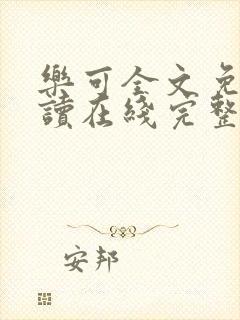 樂可全文免
讀在綫完整
安邦